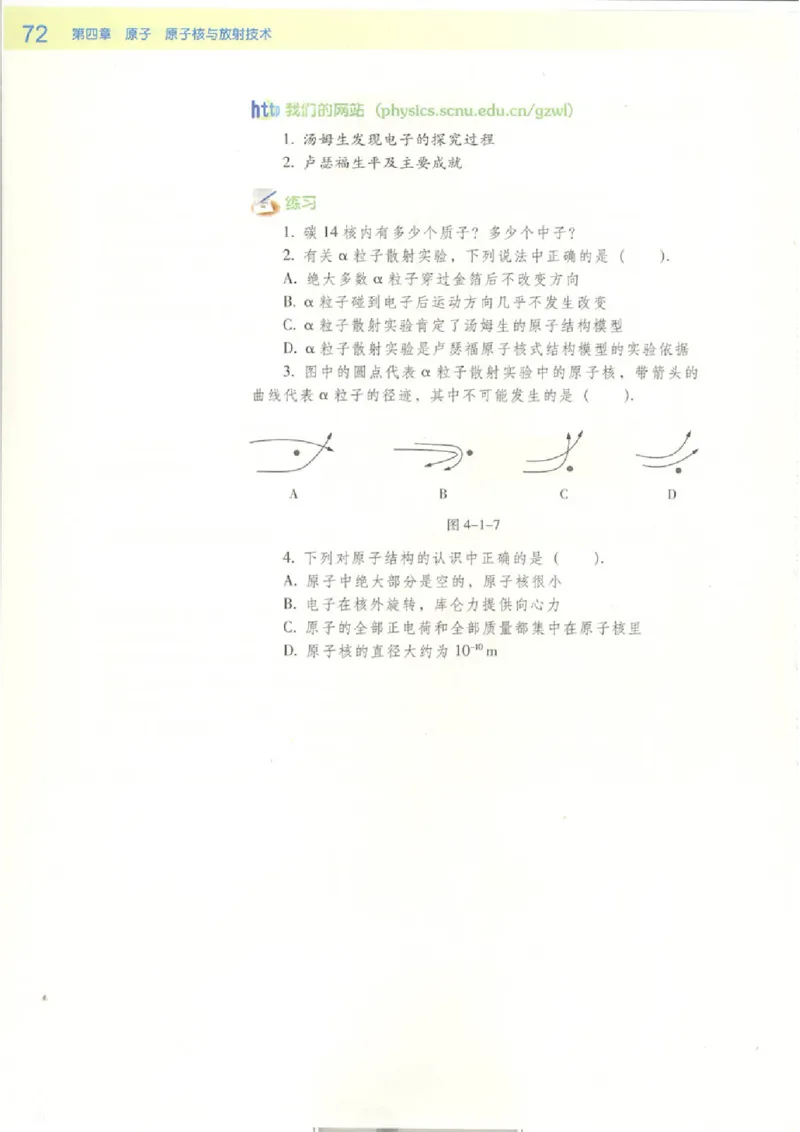 72 第四章 原子 原子核与放射技术
http 我们的网站（physics.scnu.edu.cn/gzwl）
1. 汤姆生发现电子的探究过程
2. 卢瑟福生平及主要成就
练习
1. 碳 14 核内有多少个质子？多少个中子？
2. 有关 α 粒子散射实验，下列说法中正确的是（ ）.
A. 绝大多数 α 粒子穿过金箔后不改变方向
B. α 粒子碰到电子后运动方向几乎不发生改变
C. α 粒子散射实验肯定了汤姆生的原子结构模型
D. α 粒子散射实验是卢瑟福原子核式结构模型的实验依据
3. 图中的圆点代表 α 粒子散射实验中的原子核，带箭头的
曲线代表 α 粒子的径迹，其中不可能发生的是（ ）.
A B C D
图 4-1-7
4. 下列对原子结构的认识中正确的是（ ）.
A. 原子中绝大部分是空的，原子核很小
B. 电子在核外旋转，库仑力提供向心力
C. 原子的全部正电荷和全部质量都集中在原子核里
D. 原子核的直径大约为 10⁻¹⁰ m